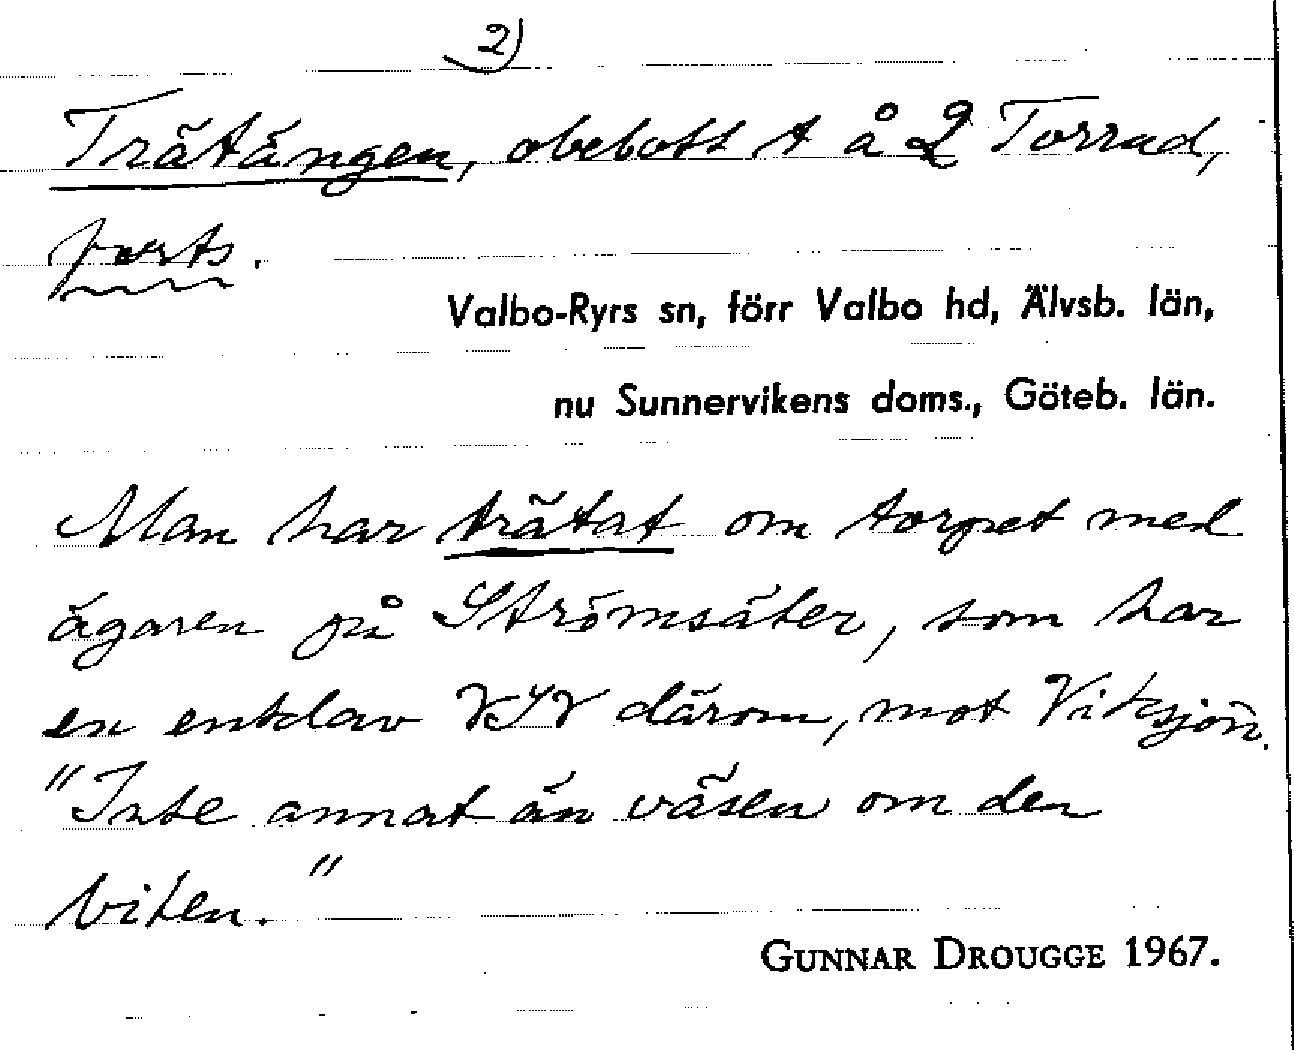 2)
Trätängen, obebott t å 2 Torrud,
forts.
Valbo-Ryrs sn, förr Valbo hd, Älvsb. län,
nu Sunnervikens doms., Göteb. län.
Man har trätat om torpet med
ägaren på Strömsäter, som har
en enklav VSV därom, mot Viksjön.
"Inte annat än väsen om den
biten."
GUNNAR DROUGGE 1967.